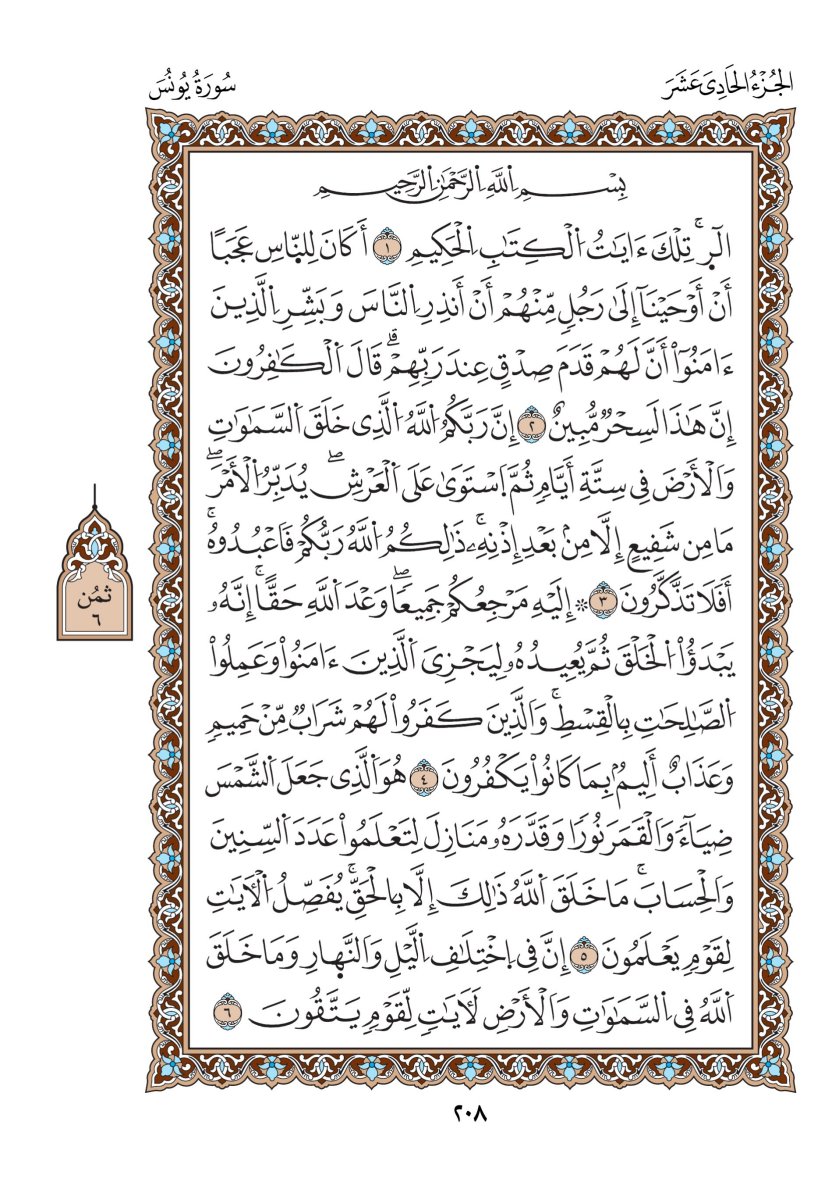 الجُزْءُ الحَادِىَ عَشَرَ
سُورَةُ يُونُسَ
بِسْمِ اِ۬للَّهِ اِ۬لرَّحْمَٰنِ اِ۬لرَّحِيمِ
الٓرۚ تِلْكَ ءَايَٰتُ اُ۬لْكِتَٰبِ اِ۬لْحَكِيمِ ١ أَكَانَ لِلنَّاسِ عَجَبًا
أَنْ أَوْحَيْنَآ إِلَىٰ رَجُلٍ مِّنْهُمْ أَنْ أَنذِرِ اِ۬لنَّاسَ وَبَشِّرِ اِ۬لَّذِينَ
ءَامَنُوٓاْ أَنَّ لَهُمْ قَدَمَ صِدْقٍ عِندَ رَبِّهِمْۗ قَالَ اَ۬لْكَٰفِرُونَ
إِنَّ هَٰذَا لَسِحْرٌ مُّبِينٌ ٢ إِنَّ رَبَّكُمُ اُ۬للَّهُ اُ۬لَّذِى خَلَقَ اَ۬لسَّمَٰوَٰتِ
وَالْأَرْضَ فِى سِتَّةِ أَيَّامٍ ثُمَّ اَ۪سْتَوَىٰ عَلَى اَ۬لْعَرْشِۖ يُدَبِّرُ اُ۬لْأَمْرَۖ
مَا مِن شَفِيعٍ إِلَّا مِنۢ بَعْدِ إِذْنِهِۦۚ ذَٰلِكُمُ اُ۬للَّهُ رَبُّكُمْ فَاعْبُدُوهُۚ
أَفَلَا تَذَّكَّرُونَ ٣ ۞ إِلَيْهِ مَرْجِعُكُمْ جَمِيعًاۖ وَعْدَ اَ۬للَّهِ حَقًّاۚ إِنَّهُۥ
يَبْدَؤُاْ اُ۬لْخَلْقَ ثُمَّ يُعِيدُهُۥ لِيَجْزِىَ اَ۬لَّذِينَ ءَامَنُواْ وَعَمِلُواْ
اُ۬لصَّٰلِحَٰتِ بِالْقِسْطِۚ وَالَّذِينَ كَفَرُواْ لَهُمْ شَرَابٌ مِّنْ حَمِيمٍ
وَعَذَابٌ أَلِيمٌۢ بِمَا كَانُواْ يَكْفُرُونَ ٤ هُوَ اَ۬لَّذِى جَعَلَ اَ۬لشَّمْسَ
ضِيَآءً وَالْقَمَرَ نُورًا وَقَدَّرَهُۥ مَنَازِلَ لِتَعْلَمُواْ عَدَدَ اَ۬لسِّنِينَ
وَالْحِسَابَۚ مَا خَلَقَ اَ۬للَّهُ ذَٰلِكَ إِلَّا بِالْحَقِّۚ يُفَصِّلُ اُ۬لْأٓيَٰتِ
لِقَوْمٍ يَعْلَمُونَ ٥ إِنَّ فِى اِ۪خْتِلَٰفِ اِ۬لَّيْلِ وَالنَّهَارِ وَمَا خَلَقَ
اَ۬للَّهُ فِى اِ۬لسَّمَٰوَٰتِ وَالْأَرْضِ لَأٓيَٰتٍ لِّقَوْمٍ يَتَّقُونَ ٦
ثمُن
٦
٢٠٨